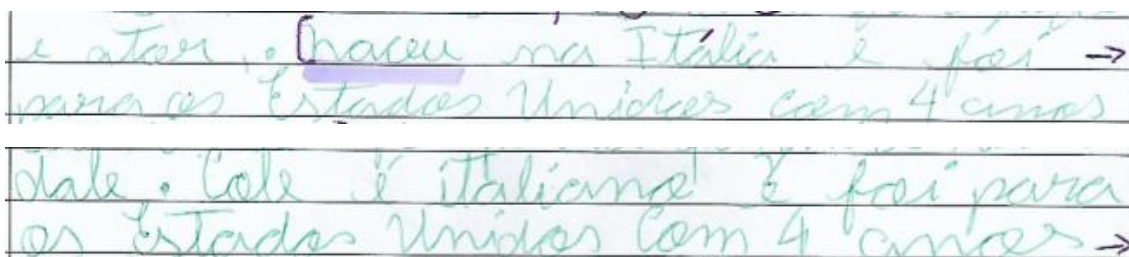 e ator. naceu na Itália é foi →
para os Estados Unidos com 4 anos
dale. Cole é italiano é foi para
os Estados Unidos Com 4 anos →